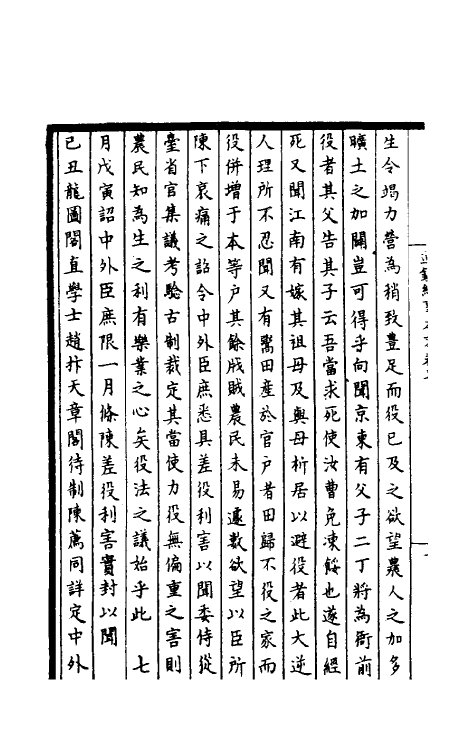 生令竭力營為稍致豊足而役已及之欲望農人之加多
曠土之加闢豈可得乎向聞京東有父子二丁將為衙前
役者其父告其子云吾當求死使汝曹免凍餒也遂自經
死又聞江南有嫁其祖母及與母析居以避役者此大逆
人理所不忍聞又有鬻田產於官戶者田歸不役之家而
役併增于本等戶其餘戕賊農民未易遽數欲望以臣所
陳下哀痛之詔令中外臣庶悉具差役利害以聞委侍從
臺省官集議考驗古制裁定其當使力役無偏重之害則
農民知為生之利有樂業之心矣役法之議始乎此　七
月戊寅詔中外臣庶限一月條陳差役利害實封以聞
己丑龍圖閣直學士趙抃天章閣待制陳薦同詳定中外